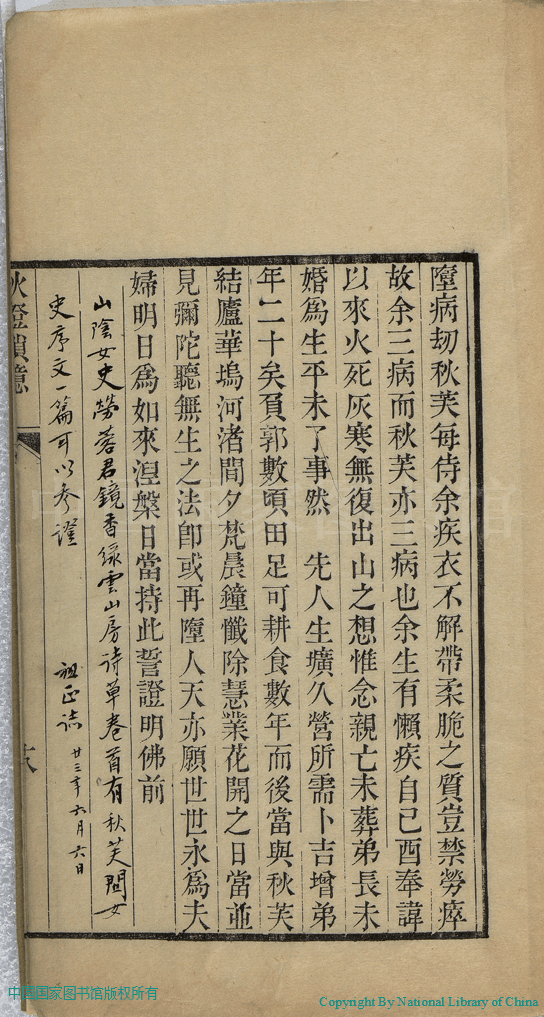 墮病劫秋芙每侍余疾衣不解帶柔脆之質豈禁勞瘁
故余三病而秋芙亦三病也余生有懶疾自己酉奉諱
以來火死灰寒無復出山之想惟念親亡未葬弟長未
婚爲生平未了事然　先人生壙久營所需卜吉增弟
年二十矣負郭數頃田足可耕食數年而後當與秋芙
結廬華塢河渚間夕梵晨鐘懺除慧業花開之日當並
見彌陀聽無生之法卽或再墮人天亦願世世永爲夫
婦明日爲如來湼槃日當持此誓證明佛前
山陰女史勞蓉君鏡香綠雲山房诗草卷首有秋芙閨女
史序文一篇可以參證
祖正誌 廿三年六月六日
秋鐙瑣憶
中国国家图书馆版权所有
Copyright By National Library of China